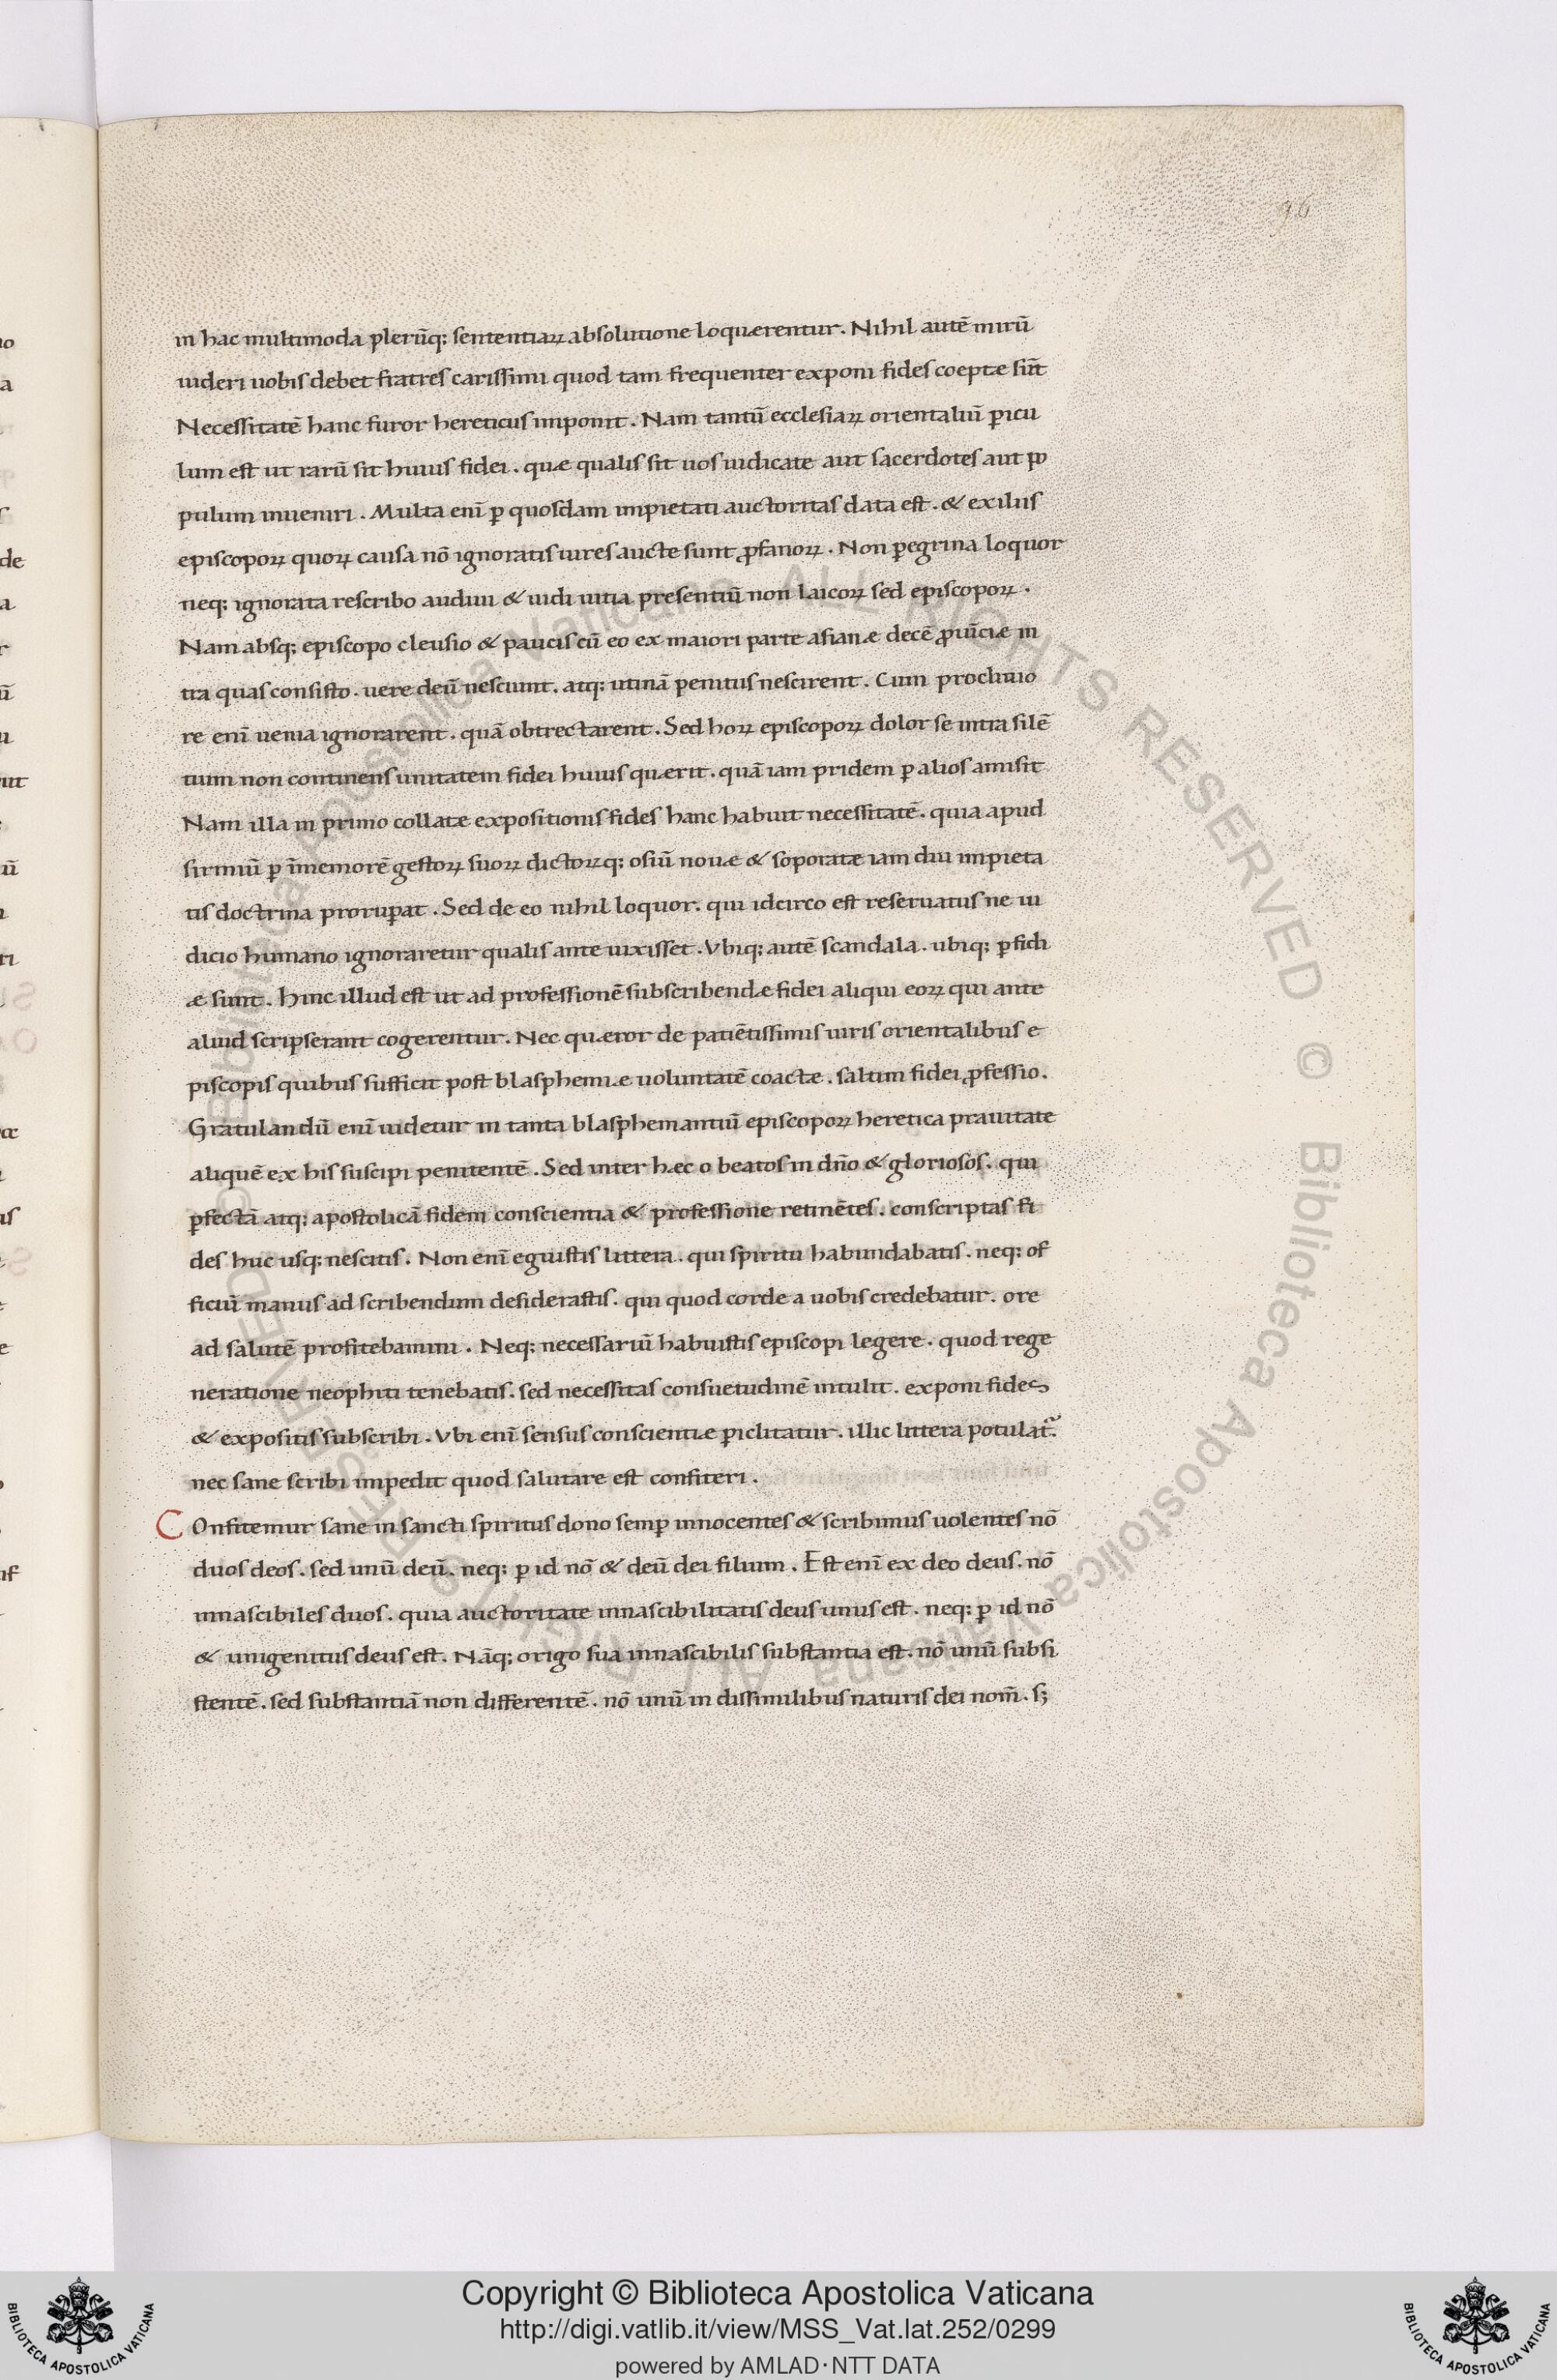 96
in hac multimoda plerūq; sententiaꝝ absolutione loquærentur. Nihil autē mirū
uideri uobis debet fratres carissimi quod tam frequenter exponi fides coeptæ sūt
Necessitatē hanc furor hereticus imponit. Nam tantū ecclesiaꝝ orientaliū ꝑicu
lum est ut rarū sit huius fidei. quæ qualis sit uos iudicate aut sacerdotes aut po
pulum inueniri. Multa enī ꝑ quosdam impietati auctoritas data est. & exiliis
episcopoꝝ quoꝝ causa nō ignoratis uires aucte sunt ꝓfanoꝝ. Non ꝑegrina loquor
neq; ignorata rescribo audiui & uidi uitia presentiū non laicoꝝ sed episcopoꝝ.
Nam absq; episcopo cleusio & paucis cū eo ex maiori parte asianæ decē ꝓuīciæ in
tra quas consisto. uere deū nesciunt. atq; utinā penitus nescirent. Cum procliuio
re enī uenia ignorarent. quā obtrectarent. Sed hoꝝ episcopoꝝ dolor se intra silē
tium non continens unitatem fidei huius quærit. quā iam pridem ꝑ alios amisit
Nam illa in primo collatæ expositionis fides hanc habuit necessitatē. quia apud
sirmiū ꝑ īmemorē gestoꝝ suoꝝ dictoꝝq; osiū nouæ & soporatæ iam diu impieta
tis doctrina proruꝑat. Sed de eo nihil loquor. qui idcirco est reseruatus ne iu
dicio humano ignoraretur qualis ante uixisset. Vbiq; autē scandala. ubiq; ꝑfidi
æ sunt. Hinc illud est ut ad professionē subscribendæ fidei aliqui eoꝝ qui ante
aliud scripserant cogerentur. Nec quæror de patiētissimis uiris orientalibus e
piscopis quibus sufficit post blasphemiæ uoluntatē coactæ. saltim fidei ꝓfessio.
Gratulandū enī uidetur in tanta blasphemantiū episcopoꝝ heretica prauitate
aliquē ex his suscipi penitentē. Sed inter hæc o beatos in dn̄o & gloriosos. qui
ꝑfectā atq; apostolicā fidem conscientia & professione retinētes. conscriptas fi
des huc usq; nescitis. Non enī eguistis littera. qui spiritu habundabatis. neq; of
ficiū manus ad scribendum desiderastis. qui quod corde a uobis credebatur. ore
ad salutē profitebamini. Neq; necessariū habuistis episcopi legere. quod rege
neratione neophiti tenebatis. sed necessitas consuetudinē intulit. exponi fides
& expositis subscribi. Vbi enī sensus conscientiæ ꝑiclitatur. illic littera potulat̃.
nec sane scribi impedit quod salutare est confiteri.
COnfitemur sane in sancti spiritus dono semꝑ innocentes & scribimus uolentes nō
duos deos. sed unū deū. neq; ꝑ id nō & deū dei filium. Est enī ex deo deus. nō
innascibiles duos. quia auctoritate innascibilitatis deus unus est. neq; ꝑ id nō
& unigenitus deus est. Nāq; origo sua innascibilis substantia est. nō unū subsi
stentē. sed substantiā non differentē. nō unū in dissimilibus naturis dei nom̄. sꝫ
Copyright © Biblioteca Apostolica Vaticana
http://digi.vatlib.it/view/MSS_Vat.lat.252/0299
powered by AMLAD·NTT DATA